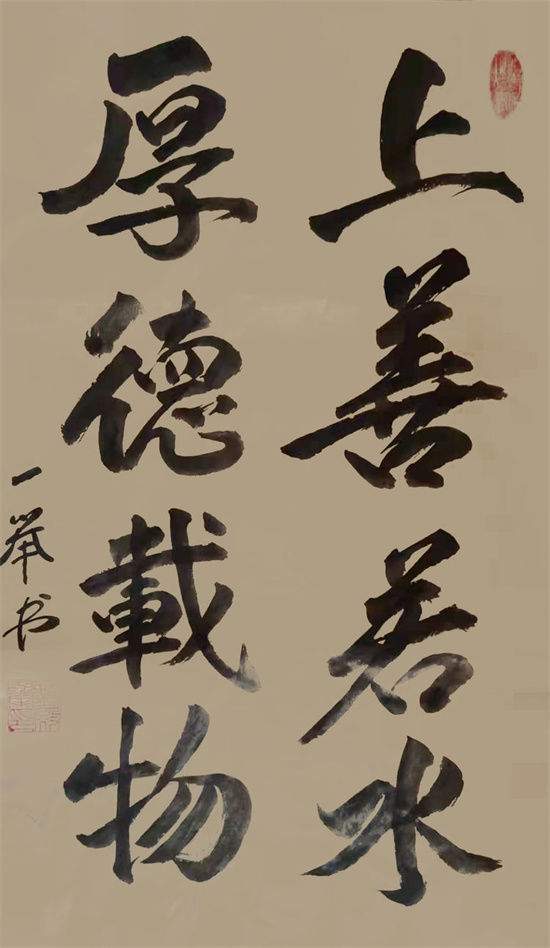 上善若水
厚德載物
一举书